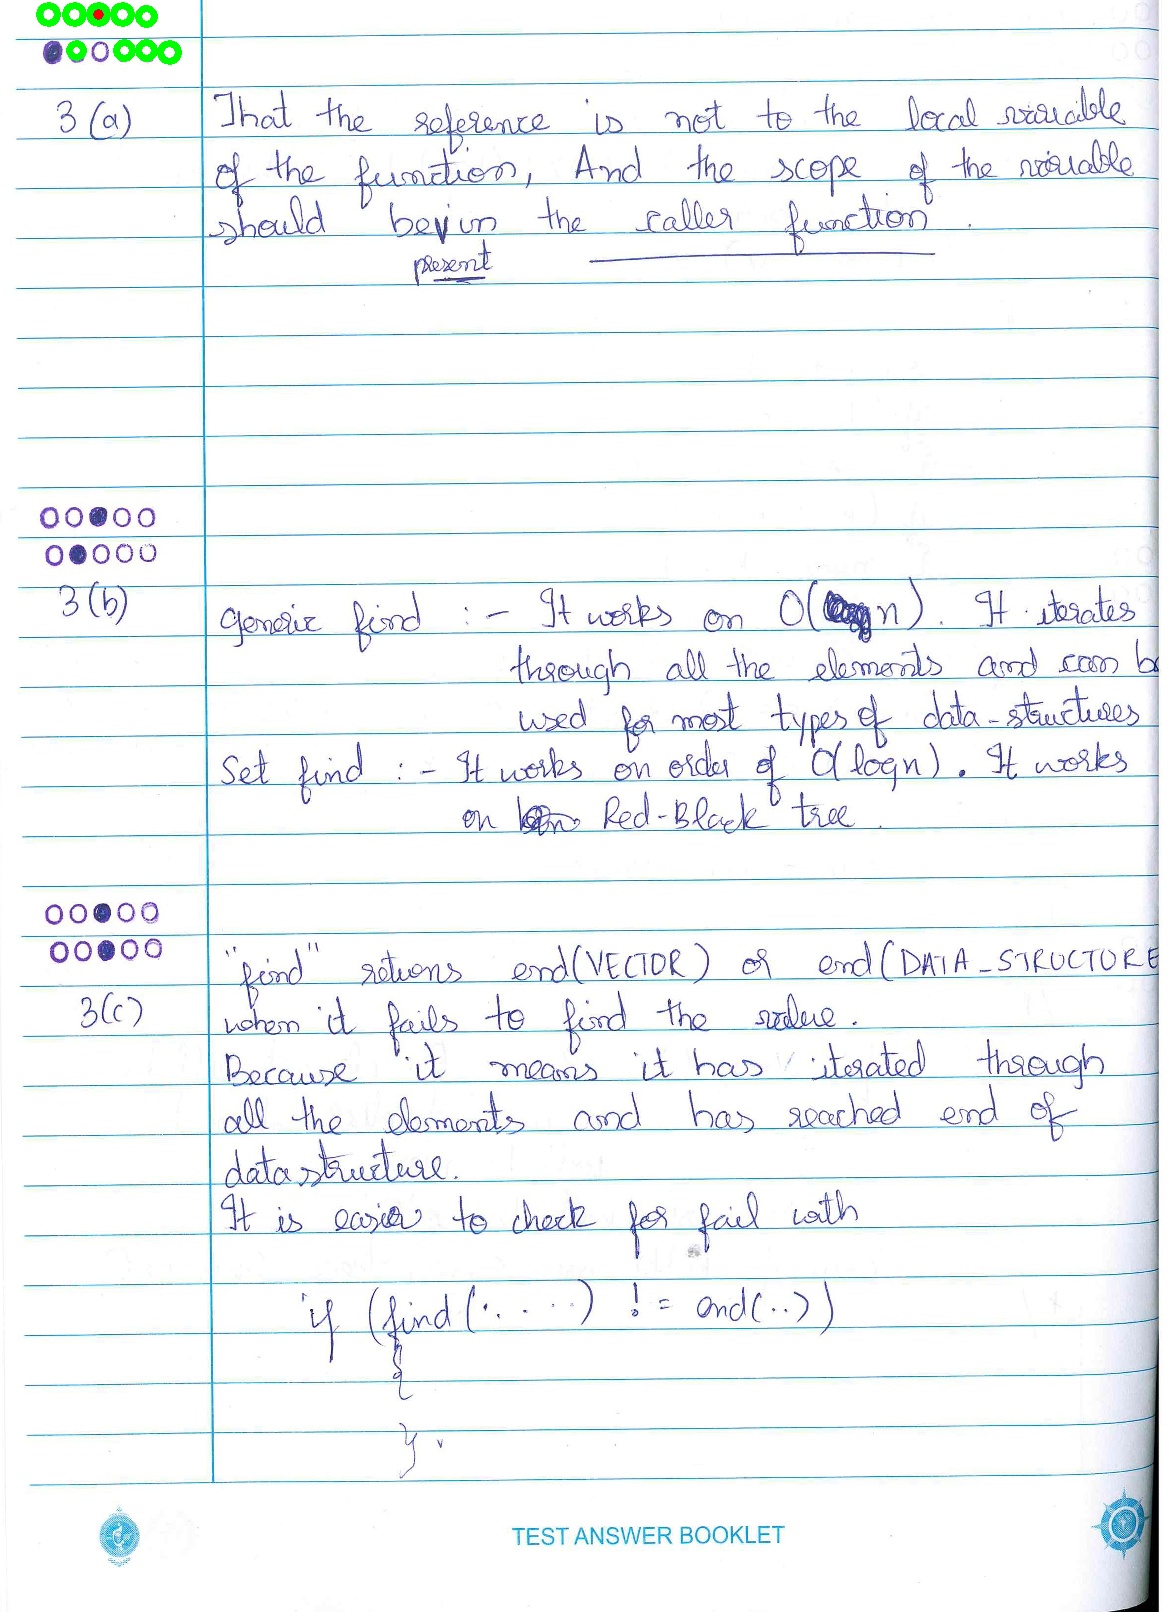 3 (a) That the reference is not to the local variable
of the function, And the scope of the variable
should be in the caller function.
present
3(b) Generic find :- It works on O(n). It iterates
through all the elements and can be
used for most types of data-structures
Set find :- It works on order of O(logn). It works
on Red-Black tree.
"find" returns end(VECTOR) or end(DATA_STRUCTURE
3(c) when it fails to find the value.
Because it means it has iterated through
all the elements and has reached end of
data structure.
It is easier to check for fail with
if (find(......) != end(..))
{
}.
TEST ANSWER BOOKLET